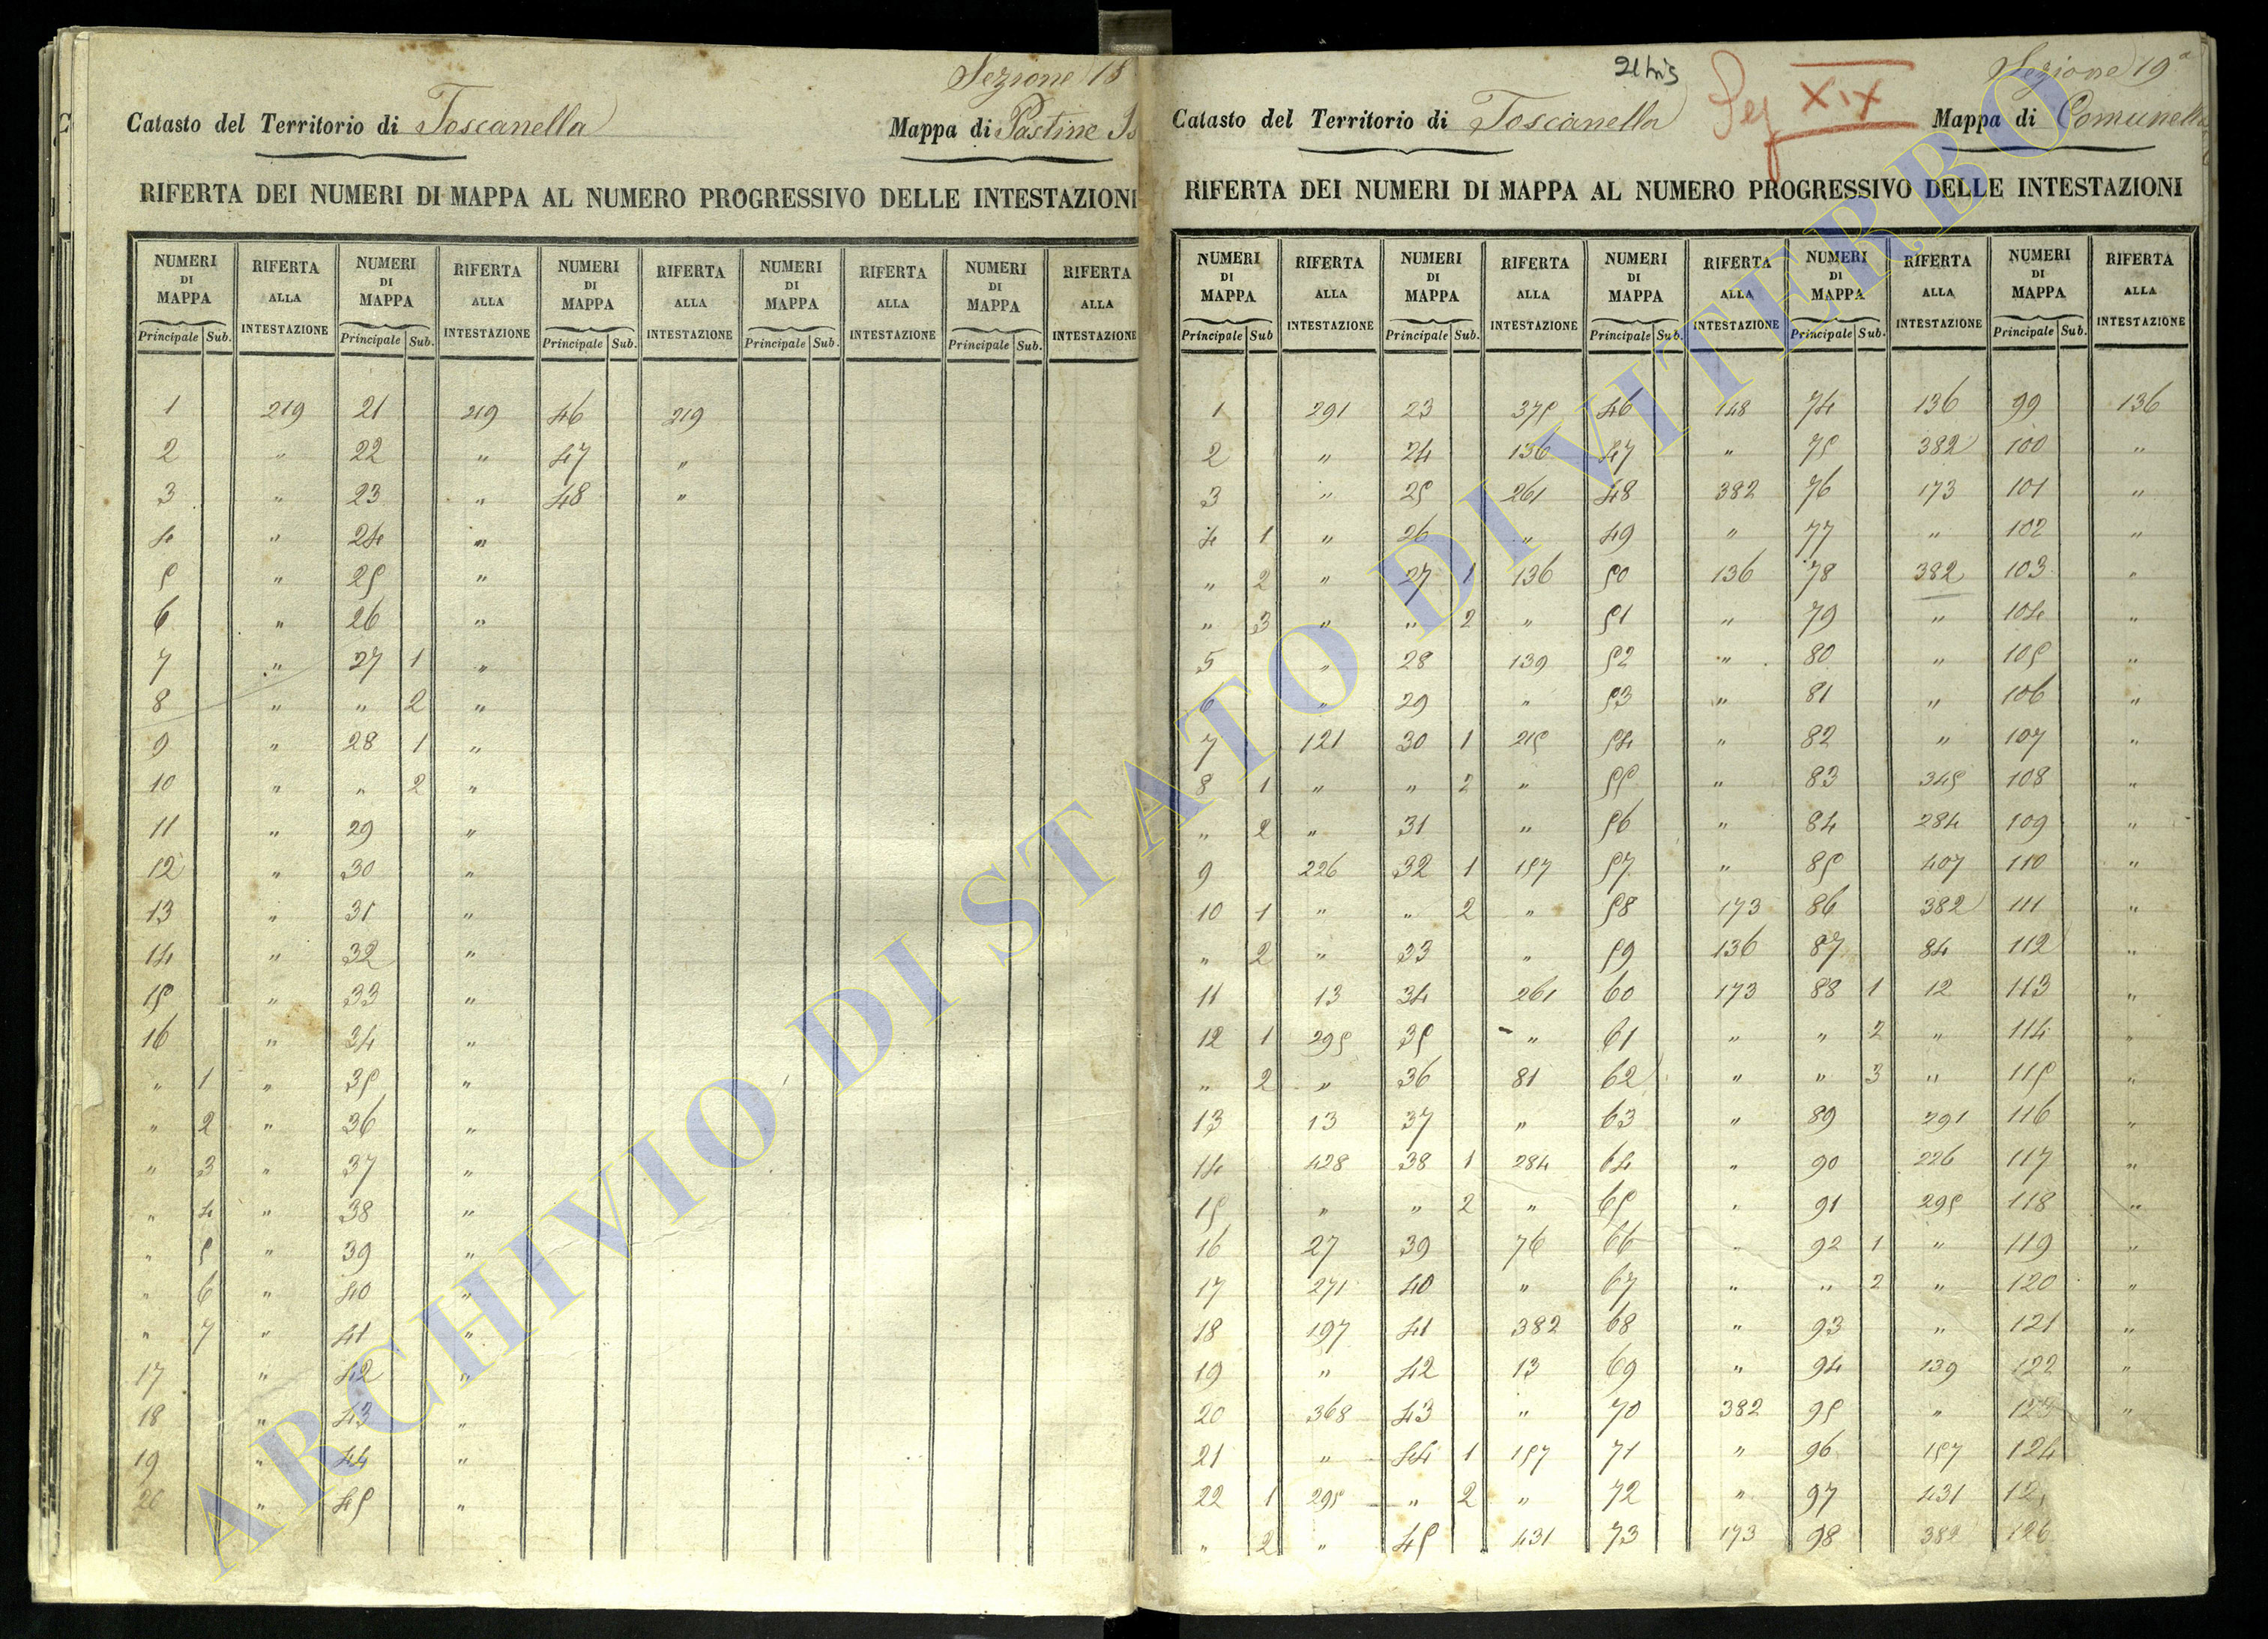 Sezione 18
Catasto del Territorio di Toscanella Mappa di Pastine
RIFERTA DEI NUMERI DI MAPPA AL NUMERO PROGRESSIVO DELLE INTESTAZIONI
NUMERI DI MAPPA RIFERTA ALLA INTESTAZIONE NUMERI DI MAPPA RIFERTA ALLA INTESTAZIONE NUMERI DI MAPPA RIFERTA ALLA INTESTAZIONE NUMERI DI MAPPA RIFERTA ALLA INTESTAZIONE NUMERI DI MAPPA RIFERTA ALLA INTESTAZIONE
Principale Sub. Principale Sub. Principale Sub. Principale Sub. Principale Sub.
1 219 21 219 46 219
2 " 22 " 47 "
3 " 23 " 48 "
4 " 24 "
5 " 25 "
6 " 26 "
7 " 27 1 "
8 " " 2 "
9 " 28 1 "
10 " " 2 "
11 " 29 "
12 " 30 "
13 " 31 "
14 " 32 "
15 " 33 "
16 " 34 "
" 1 " 35 "
" 2 " 36 "
" 3 " 37 "
" 4 " 38 "
" 5 " 39 "
" 6 " 40 "
" 7 " 41 "
17 " 42 "
18 " 43 "
19 " 44 "
20 " 45 "
21 bis
Sez XIX
Sezione 19a
Catasto del Territorio di Toscanella Mappa di Comunella
RIFERTA DEI NUMERI DI MAPPA AL NUMERO PROGRESSIVO DELLE INTESTAZIONI
NUMERI DI MAPPA RIFERTA ALLA INTESTAZIONE NUMERI DI MAPPA RIFERTA ALLA INTESTAZIONE NUMERI DI MAPPA RIFERTA ALLA INTESTAZIONE NUMERI DI MAPPA RIFERTA ALLA INTESTAZIONE NUMERI DI MAPPA RIFERTA ALLA INTESTAZIONE
Principale Sub Principale Sub. Principale Sub. Principale Sub. Principale Sub.
1 291 23 375 46 148 74 136 99 136
2 " 24 136 47 " 75 382 100 "
3 " 25 261 48 382 76 173 101 "
4 1 " 26 " 49 " 77 " 102 "
" 2 " 27 1 136 50 136 78 382 103 "
" 3 " " 2 " 51 " 79 " 104 "
5 " 28 139 52 " 80 " 105 "
6 " 29 " 53 " 81 " 106 "
7 121 30 1 215 54 " 82 " 107 "
8 1 " " 2 " 55 " 83 345 108 "
" 2 " 31 " 56 " 84 284 109 "
9 226 32 1 157 57 " 85 407 110 "
10 1 " " 2 " 58 173 86 382 111 "
" 2 " 33 " 59 136 87 84 112 "
11 13 34 261 60 173 88 1 12 113 "
12 1 295 35 " 61 " " 2 " 114 "
" 2 " 36 81 62 " " 3 " 115 "
13 13 37 " 63 " 89 291 116 "
14 428 38 1 284 64 " 90 226 117 "
15 " " 2 " 65 " 91 295 118 "
16 27 39 76 66 " 92 1 " 119 "
17 271 40 " 67 " " 2 " 120 "
18 197 41 382 68 " 93 " 121 "
19 " 42 13 69 " 94 139 122 "
20 368 43 " 70 382 95 " 123 "
21 " 44 1 157 71 " 96 157 124
22 1 295 " 2 " 72 " 97 431 12
" 2 " 45 431 73 173 98 382 126
ARCHIVIO DI STATO DI VITERBO